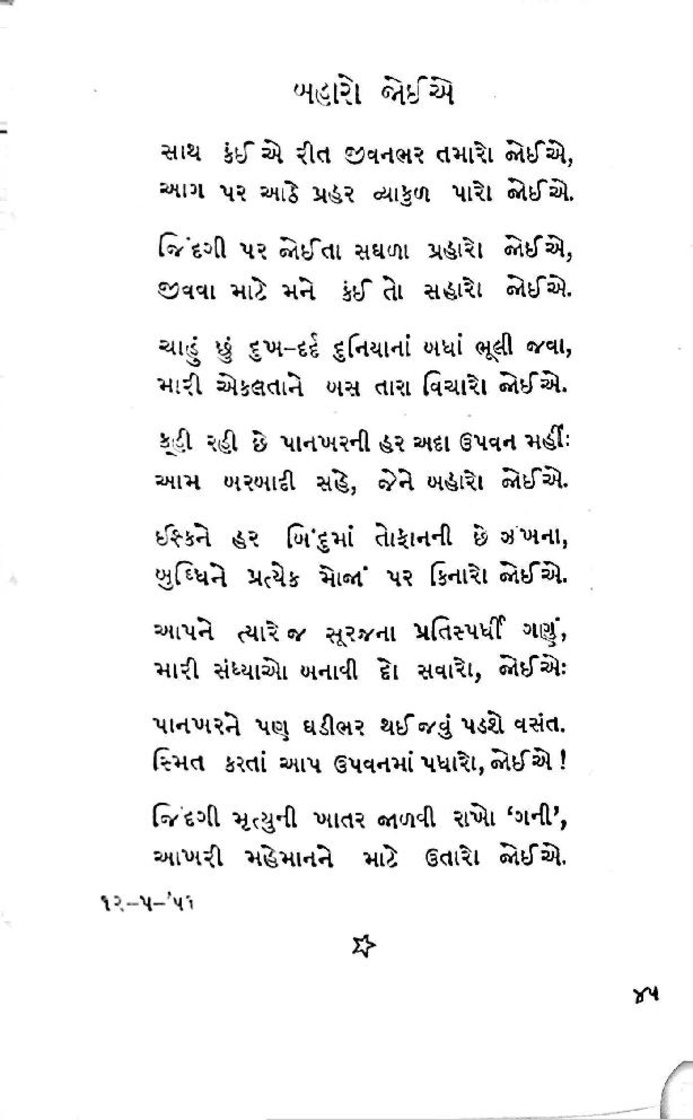 બહારો જોઈએ
સાથ કંઈ એ રીત જીવનભર તમારો જોઈએ,
આગ પર આઠે પ્રહર વ્યાકુળ પારો જોઈએ.
જિંદગી પર જોઈતા સઘળા પ્રહારો જોઈએ,
જીવવા માટે મને કંઈ તો સહારો જોઈએ.
ચાહું છું દુખ–દર્દ દુનિયાનાં બધાં ભૂલી જવા,
મારી એકલતાને બસ તારા વિચારો જોઈએ.
કૂહી રહી છે પાનખરની હર અદા ઉપવન મહીંઃ
આમ બરબાદી સહે, જેને બહારો જોઈએ.
ઈશ્કને હર બિંદુમાં તોફાનની છે ઝંખના,
બુધ્ધિને પ્રત્યેક મોજાં પર કિનારો જોઈએ.
આપને ત્યારે જ સૂરજના પ્રતિસ્પર્ધી ગણું,
મારી સંધ્યાઓ બનાવી દો સવારો, જોઈએઃ
પાનખરને પણ ઘડીભર થઈ જવું પડશે વસંત.
સ્મિત કરતાં આપ ઉપવનમાં પધારો, જોઈએ !
જિંદગી મૃત્યુની ખાતર જાળવી રાખો ‘ગની’,
આખરી મહેમાનને માટે ઉતારો જોઈએ.
૧૨–૫–’૫૧
૪૫